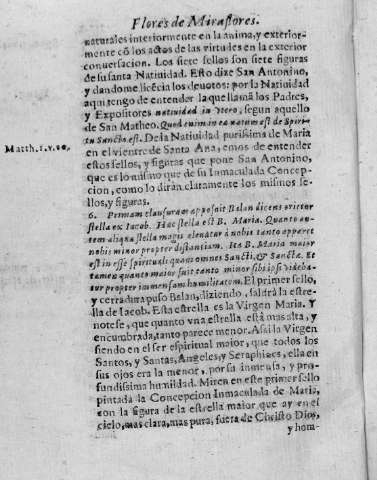 Flores de Miraflores.
naturales interiormente en la anima, y exterior-
mente cõ los actos de las virtudes en la exterior
conversacion. Los siete sellos son siete figuras
de su santa Natividad. Esto dize San Antonino,
y dandome licẽcia los devotos: por la Natividad
aqui tengo de entender la que llamã los Padres,
y Expositores natividad in vtero, segun aquello
de San Matheo. Quod enim in ea natum est de Spiri-
Matth. 1. v. 20,
tu Sancto est. De la Natividad purissima de Maria
en el vientre de Santa Ana, emos de entender
estos sellos, y figuras que pone San Antonino,
que es lo mismo que de su Inmaculada Concep-
cion, como lo dirãn claramente los mismos se-
llos, y figuras.
6. Primam clausuram apposuit Balan dicens orietur
stella ex Iacob. Hac stella est B. Maria. Quanto au-
tem aliqua stella magis elenatur à nobis tanto apparet
nobis minor propter distantiam. Ita B. Maria maior
est in esse spirituali quam omnes Sancti, & Sanctæ. Et
tamen quanto maior fuit tanto minor sibi ipsi videba-
tur propter inmensam humilitatem. El primer sello,
y cerradura puso Balan, diziendo, saldrà la estre-
lla de Iacob. Esta estrella es la Virgen Maria. Y
notese, que quanto vna estrella està mas alta, y
encumbrada, tanto parece menor. Assi la Virgen
siendo en el ser espiritual maior, que todos los
Santos, y Santas, Angeles, y Seraphines, ella en
sus ojos era la menor, por su inmensa, y pro-
fundissima humildad. Miren en este primer sello
pintada la Concepcion Inmaculada de Maria,
con la figura de la estrella maior que ay en el
cielo, mas clara, mas pura, fuera de Christo Dios,
y hom-